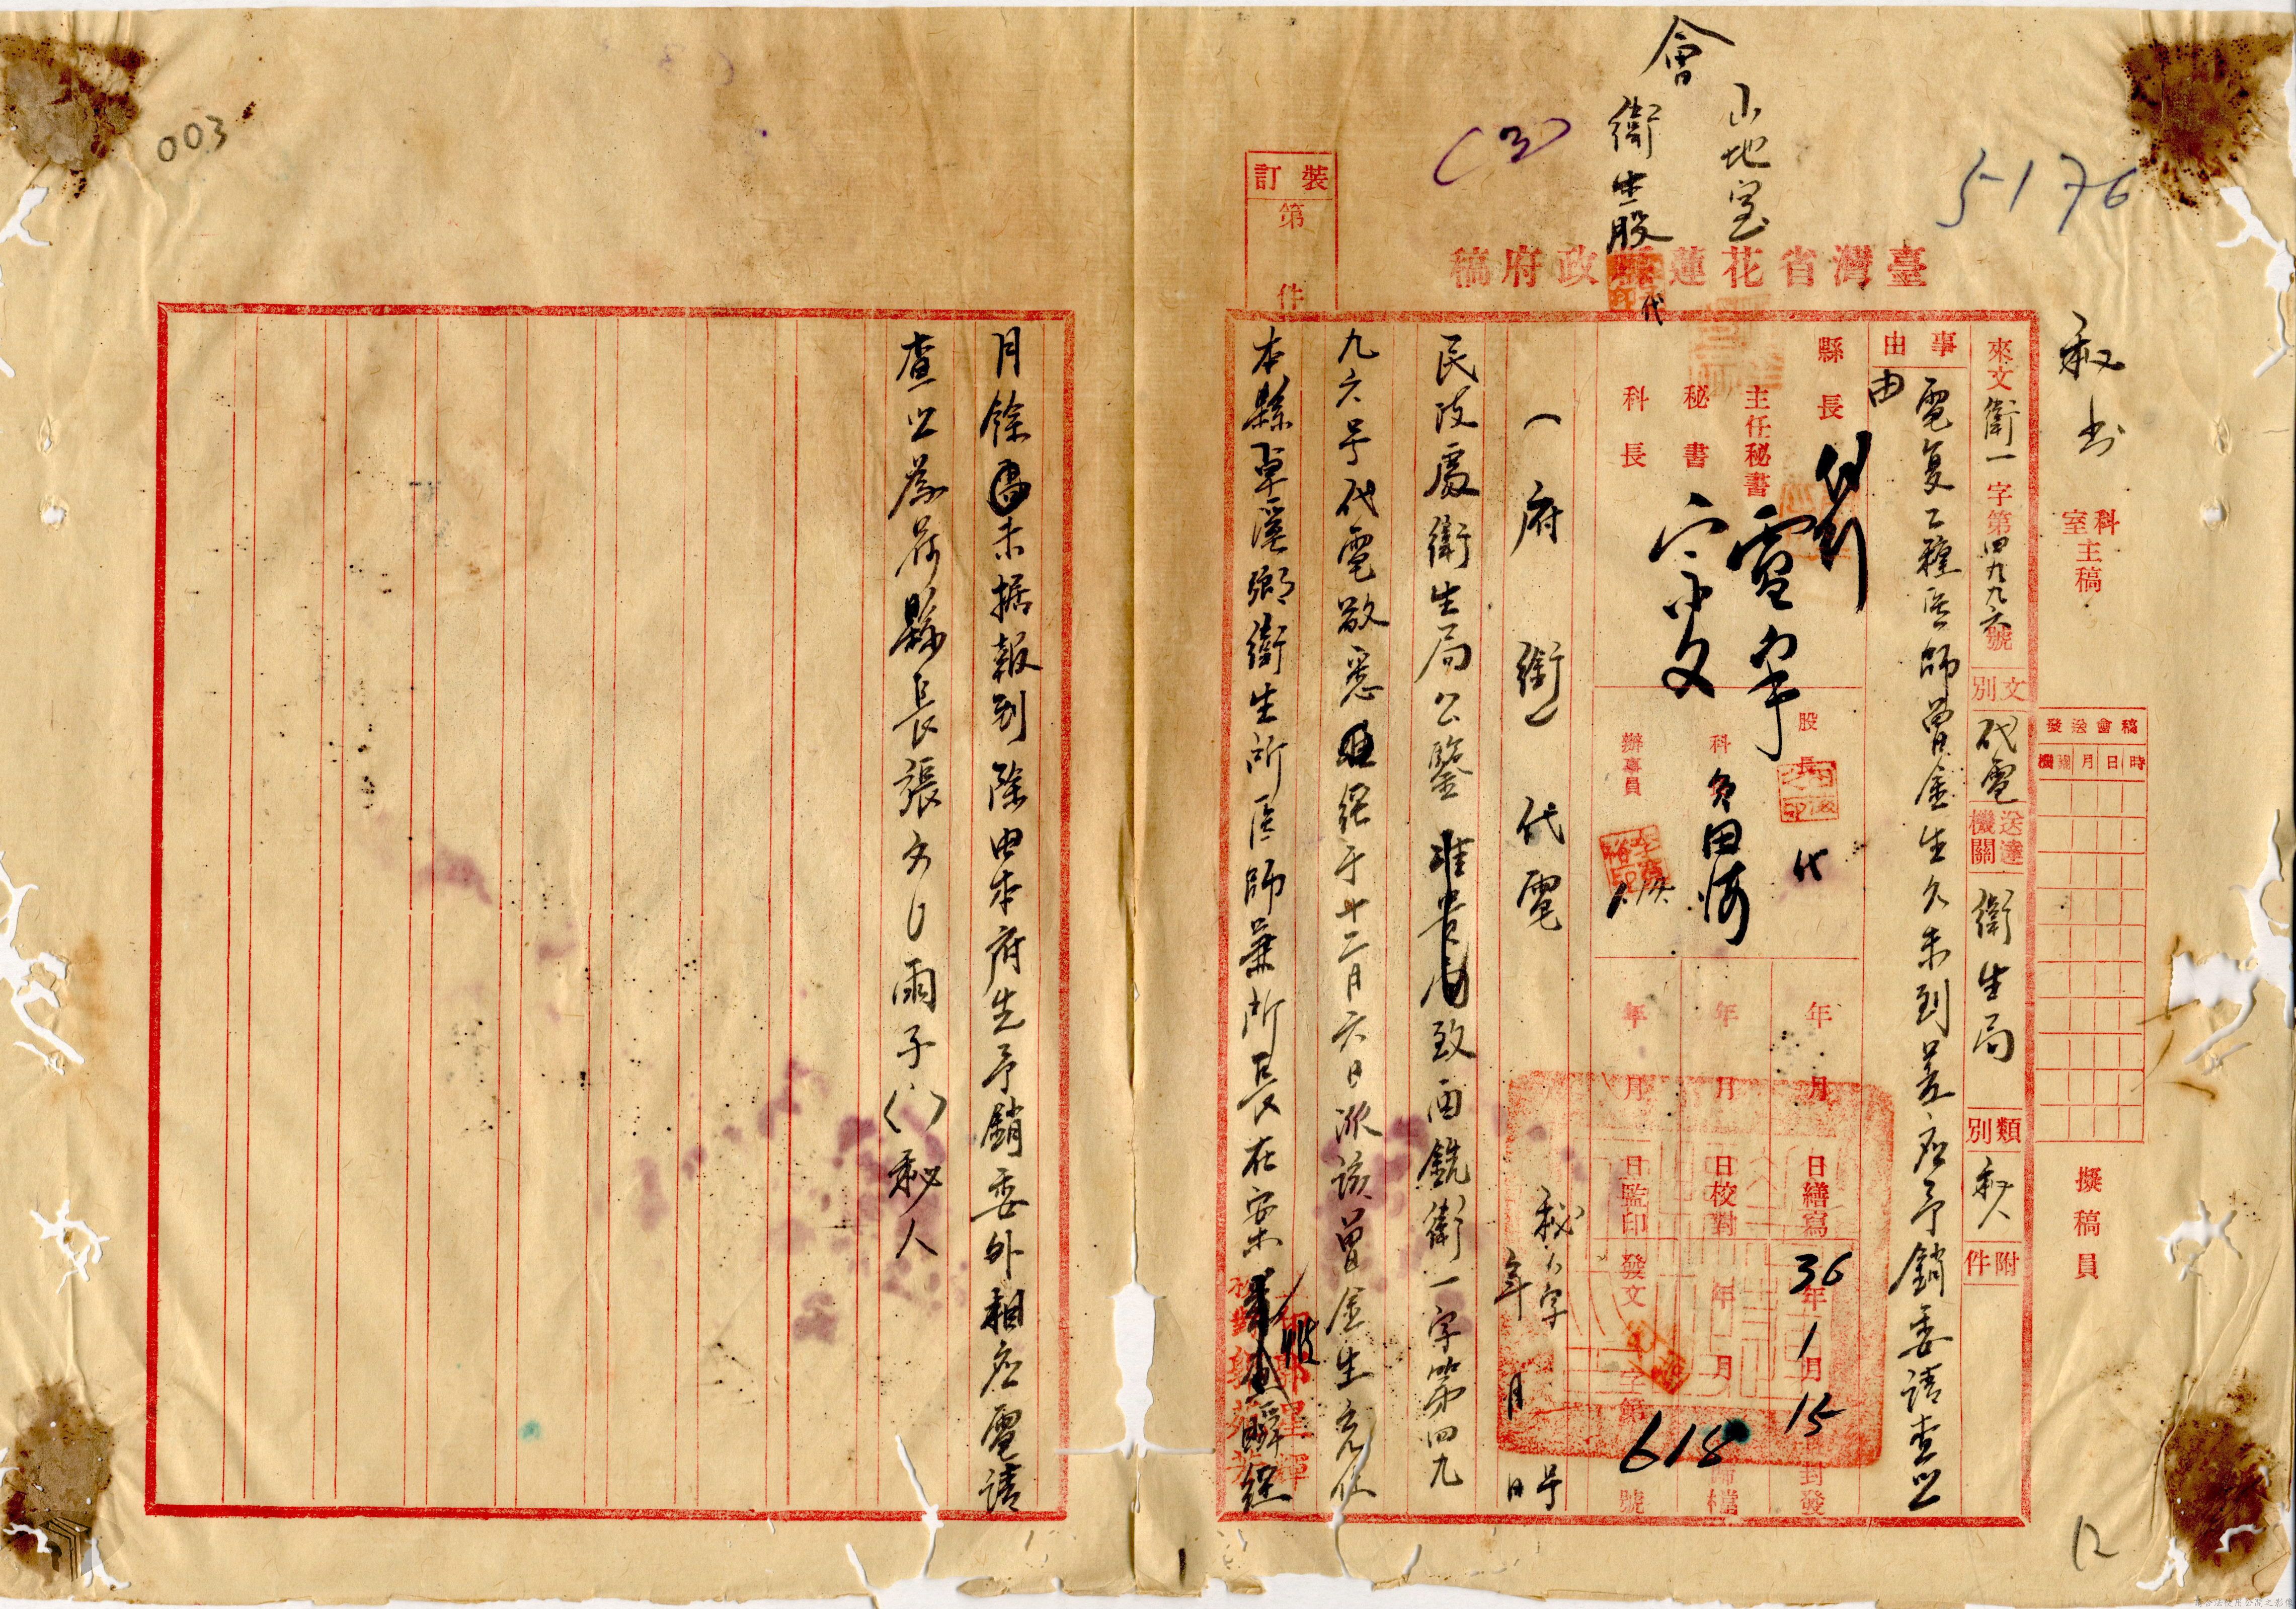 5176
山地室
會
衛生股
代
(3)
003
臺灣省花蓮縣政府稿
裝訂
第 件
秘書
科室主稿
擬稿員
稿會送發
時日月機關
來文衛一字第四九九六號
文別
代電
送達機關
衛生局
類別
秘人
附件
事由
電复乙種医師曾金生久未到差应予銷委請查照
由
縣長
主任秘書
秘書
科長
股長
代
科員
田
辦事員
年月日繕寫
年月日校對
年月日監印
36年1月15
封發
年月 歸檔
發文 字第618號
(府銜)代電
秘人字 号
年月日
民政處衛生局公鑒准貴局致酉銑衛一字第四九
九六号代電敬悉 經于十二月六日派該曾金生充任
本縣卓溪鄉衛生所医師兼所長在案 瞬經
校對
月餘 未据報到除由本府先予銷委外相应電請
查照為荷縣長張文成雨子( )秘人
12